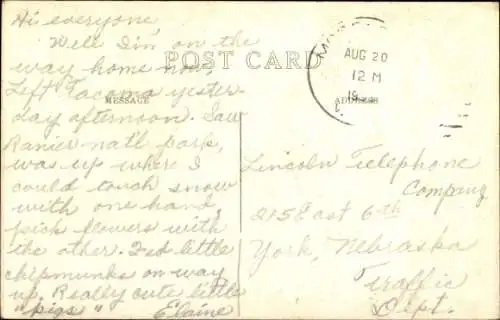 Hi everyone,
Well I'm on the
way home now,
Left Tacoma yester-
day afternoon. Saw
Ranier nat'l park,
was up where I
could touch snow
with one hand,
pick flowers with
the other. Fed little
chipmunks on way
up. Really cute little
"pigs" Elaine
POST CARD
MESSAGE
ADDRESS
AUG 20
12 M
Lincoln Telephone
Company
215 East 6th
York, Nebraska
Traffic
Dept.